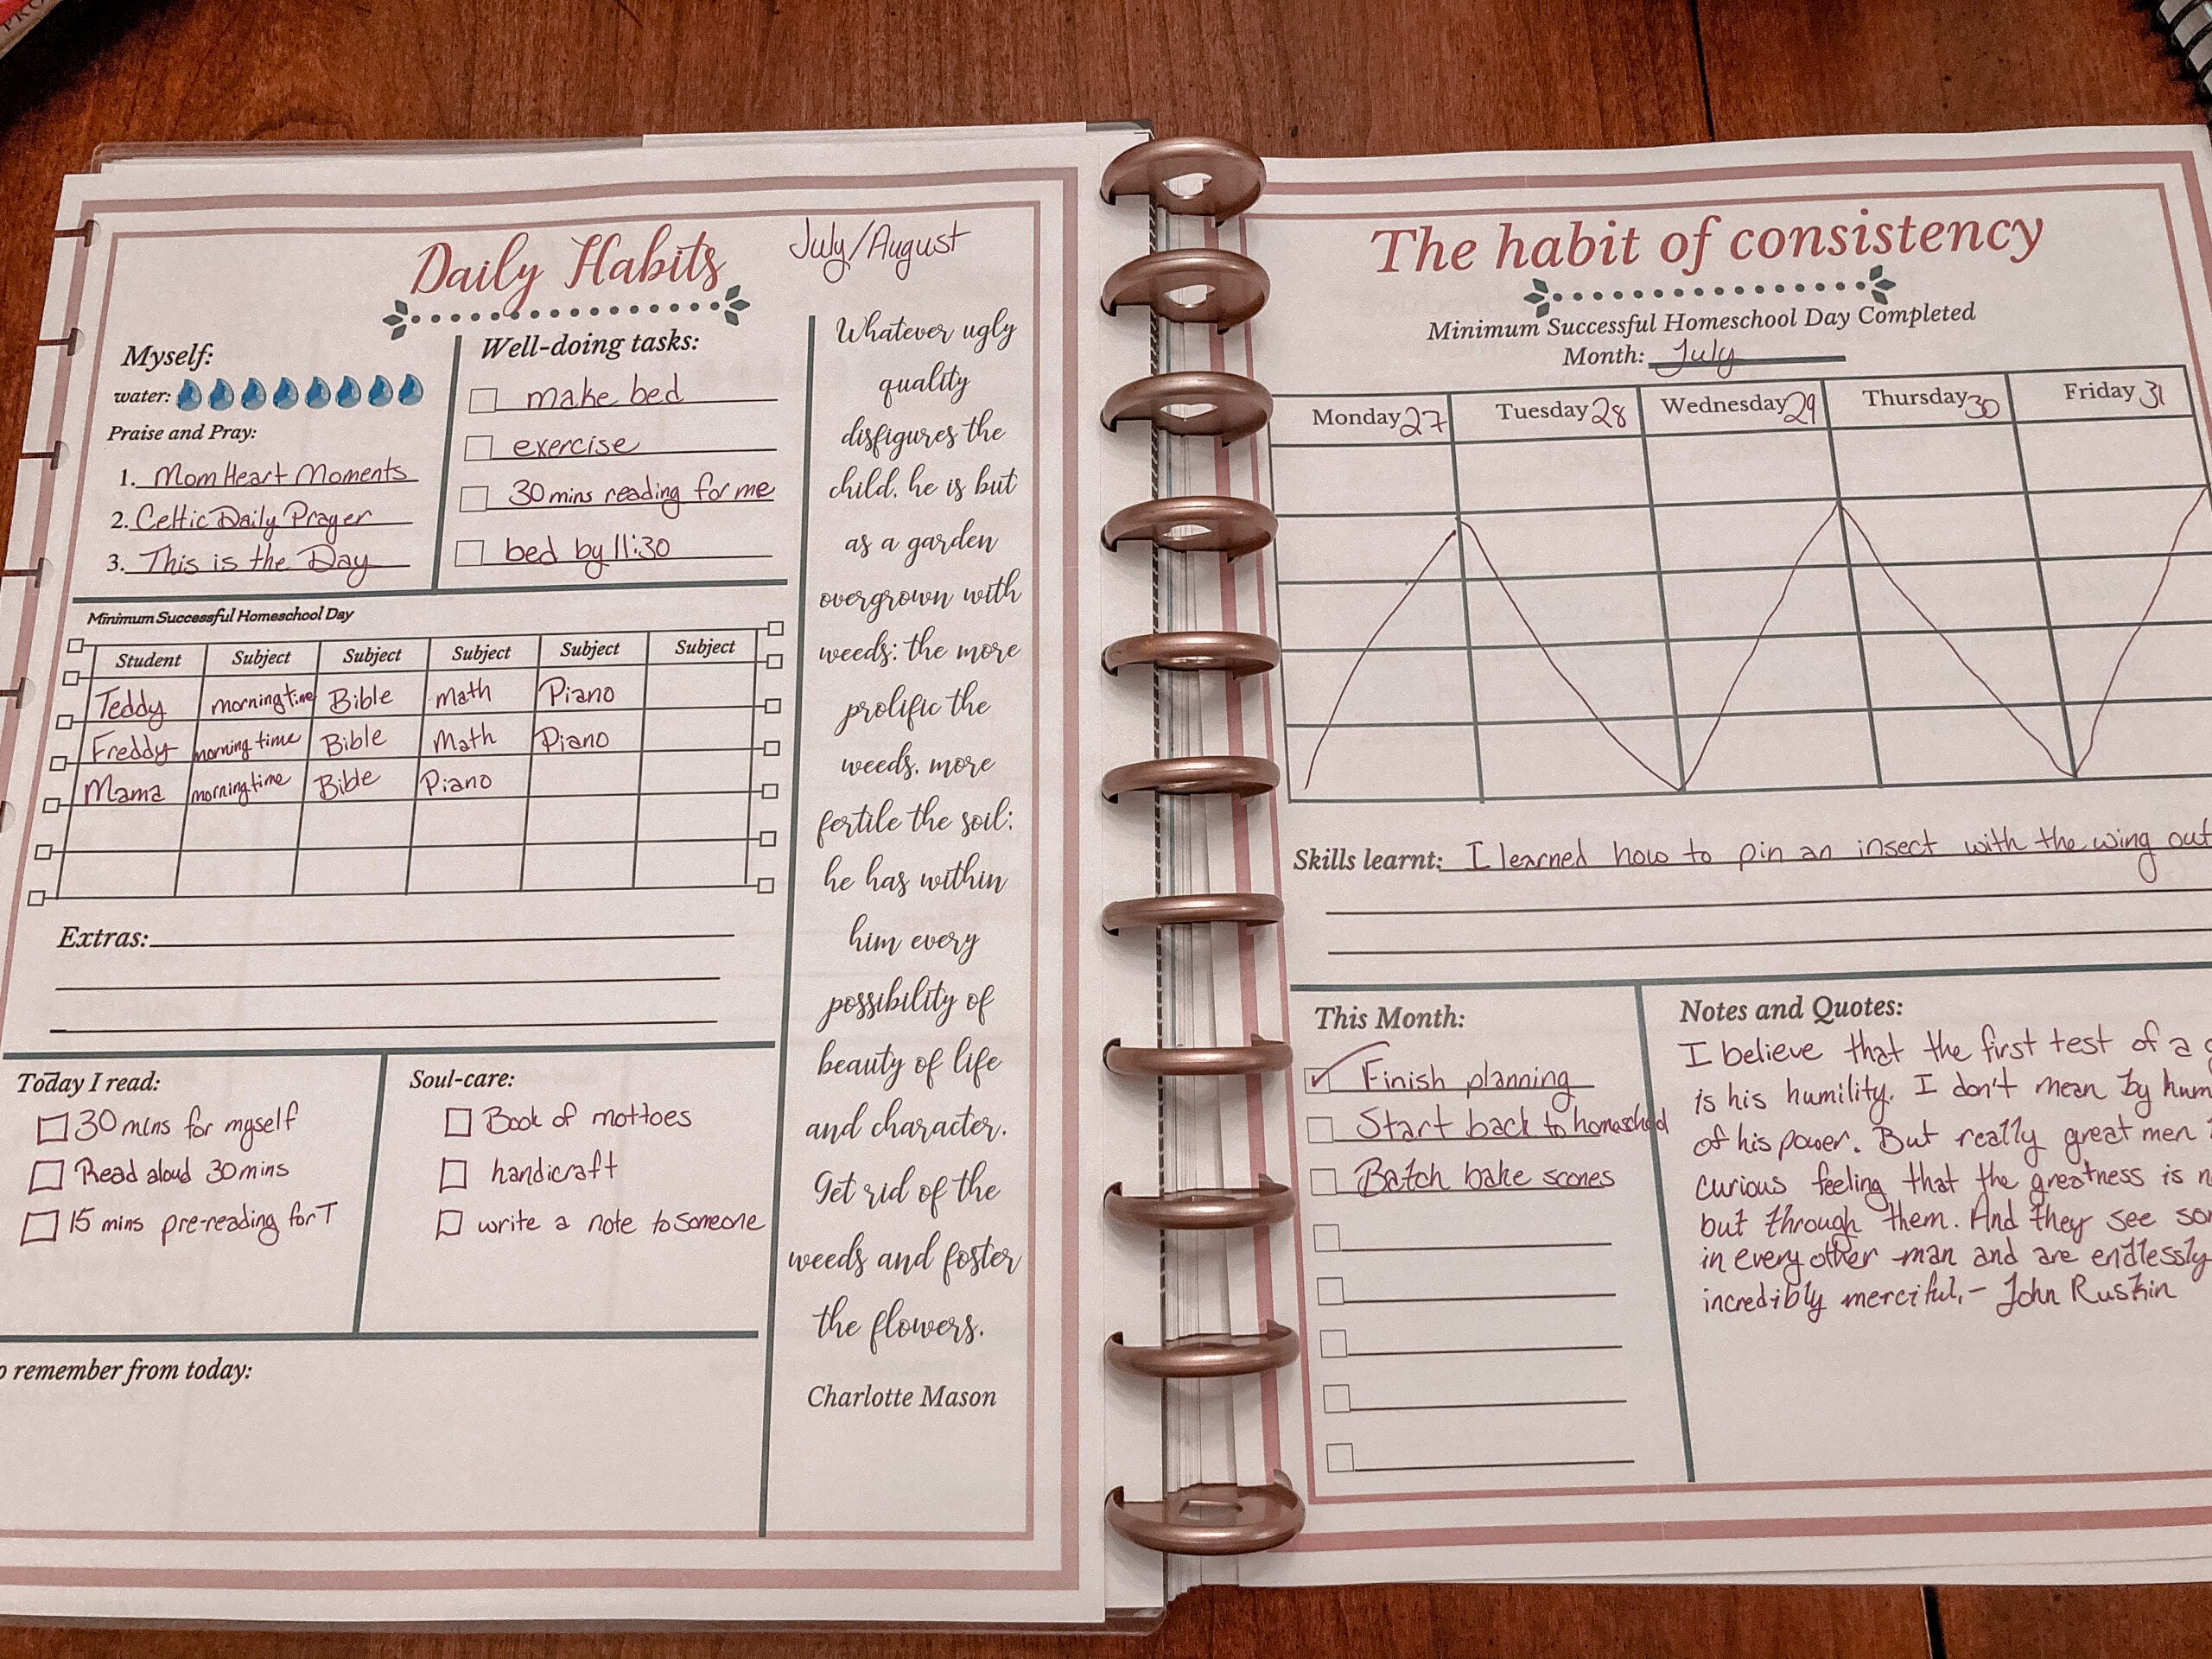 PRO
Daily Habits
July/August
Myself:
water:
Praise and Pray:
1. Mom Heart Moments
2. Celtic Daily Prayer
3. This is the Day
Well-doing tasks:
make bed
exercise
30 mins reading for me
bed by 11:30
Minimum Successful Homeschool Day
Student Subject Subject Subject Subject Subject
Teddy morning time Bible math Piano
Freddy morning time Bible Math Piano
Mama morning time Bible Piano
Extras:
Today I read:
30 mins for myself
Read aloud 30 mins
15 mins pre-reading for T
Soul-care:
Book of mottoes
handicraft
write a note to someone
o remember from today:
Whatever ugly
quality
disfigures the
child, he is but
as a garden
overgrown with
weeds: the more
prolific the
weeds, more
fertile the soil;
he has within
him every
possibility of
beauty of life
and character.
Get rid of the
weeds and foster
the flowers.
Charlotte Mason
The habit of consistency
Minimum Successful Homeschool Day Completed
Month: July
Monday 27 Tuesday 28 Wednesday 29 Thursday 30 Friday 31
Skills learnt: I learned how to pin an insect with the wing out
This Month:
Finish planning
Start back to homeschool
Batch bake scones
Notes and Quotes:
I believe that the first test of a g
is his humility. I don't mean by hum
of his power. But really great men
curious feeling that the greatness is n
but through them. And they see so
in every other man and are endlessly
incredibly merciful. - John Ruskin